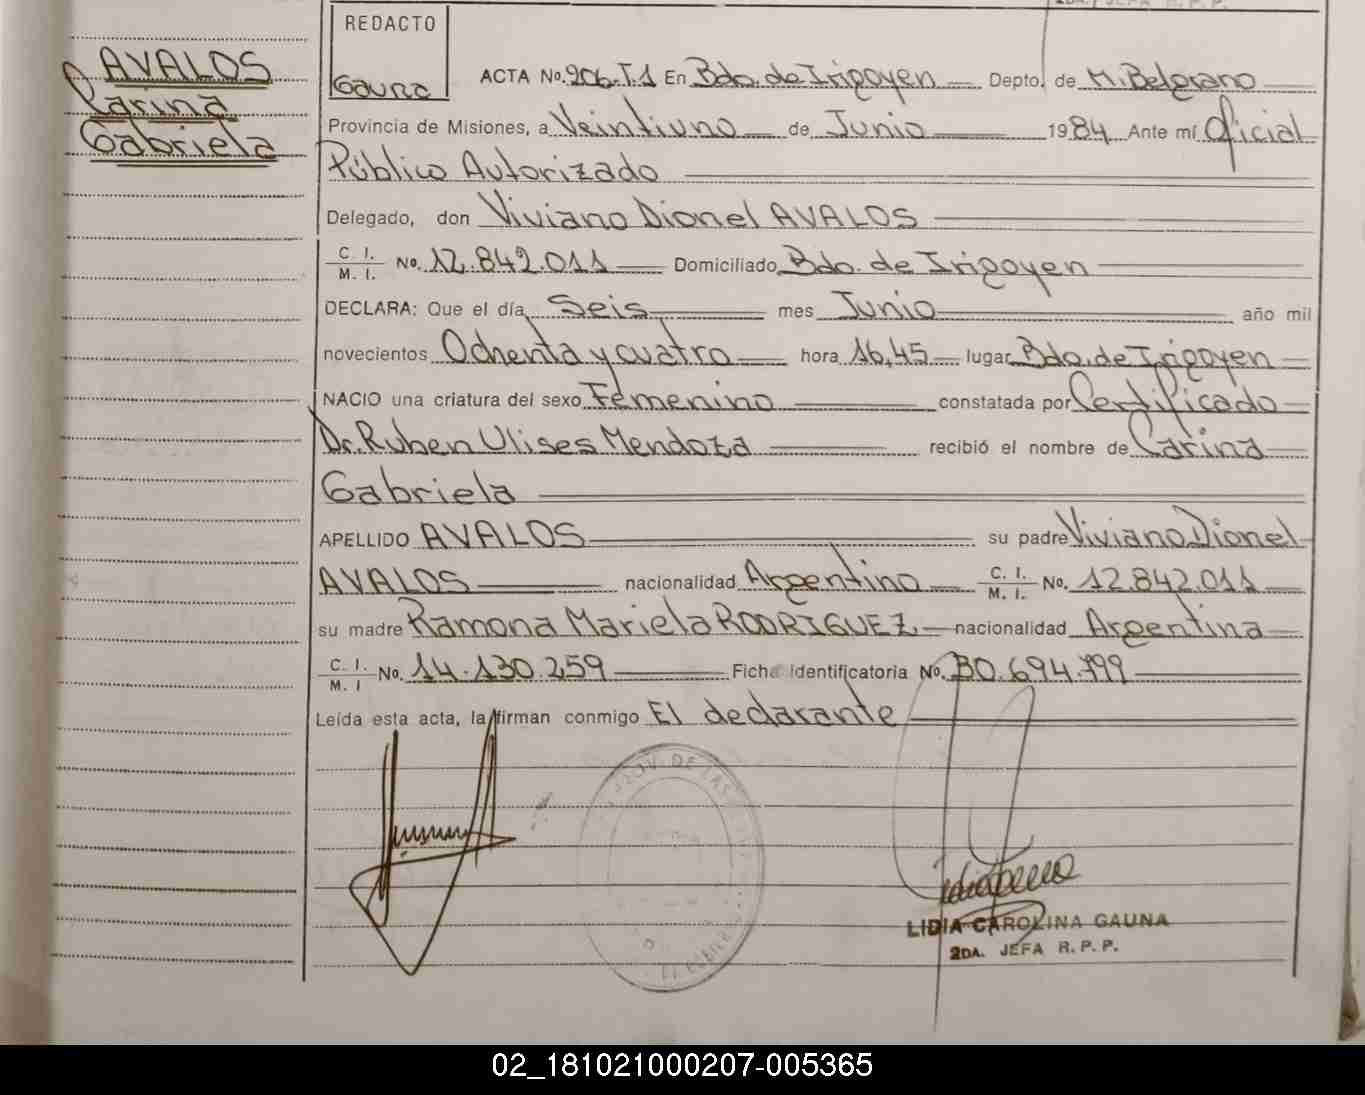 REDACTO
Gauna
AVALOS
Carina
Gabriela
ACTA No. 206.T.1 En Bdo. de Irigoyen Depto. de M. Belgrano
Provincia de Misiones, a Veintiuno de Junio 1984 Ante mí Oficial
Público Autorizado
Delegado, don Viviano Dionel AVALOS
C. I. / M. I. No. 12.842.011 Domiciliado Bdo. de Irigoyen
DECLARA: Que el día Seis mes Junio año mil
novecientos Ochenta y cuatro hora 16,45 lugar Bdo. de Irigoyen
NACIO una criatura del sexo Femenino constatada por Certificado
Dr. Ruben Ulises Mendoza recibió el nombre de Carina
Gabriela
APELLIDO AVALOS su padre Viviano Dionel
AVALOS nacionalidad Argentino C. I. / M. I. No. 12.842.011
su madre Ramona Mariela RODRIGUEZ nacionalidad Argentina
C. I. / M. I No. 14.130.259 Ficha identificatoria No. 30.694.799
Leída esta acta, la firman conmigo El declarante
PROV. DE
LIDIA CAROLINA GAUNA
2DA. JEFA R. P. P.
02_181021000207-005365